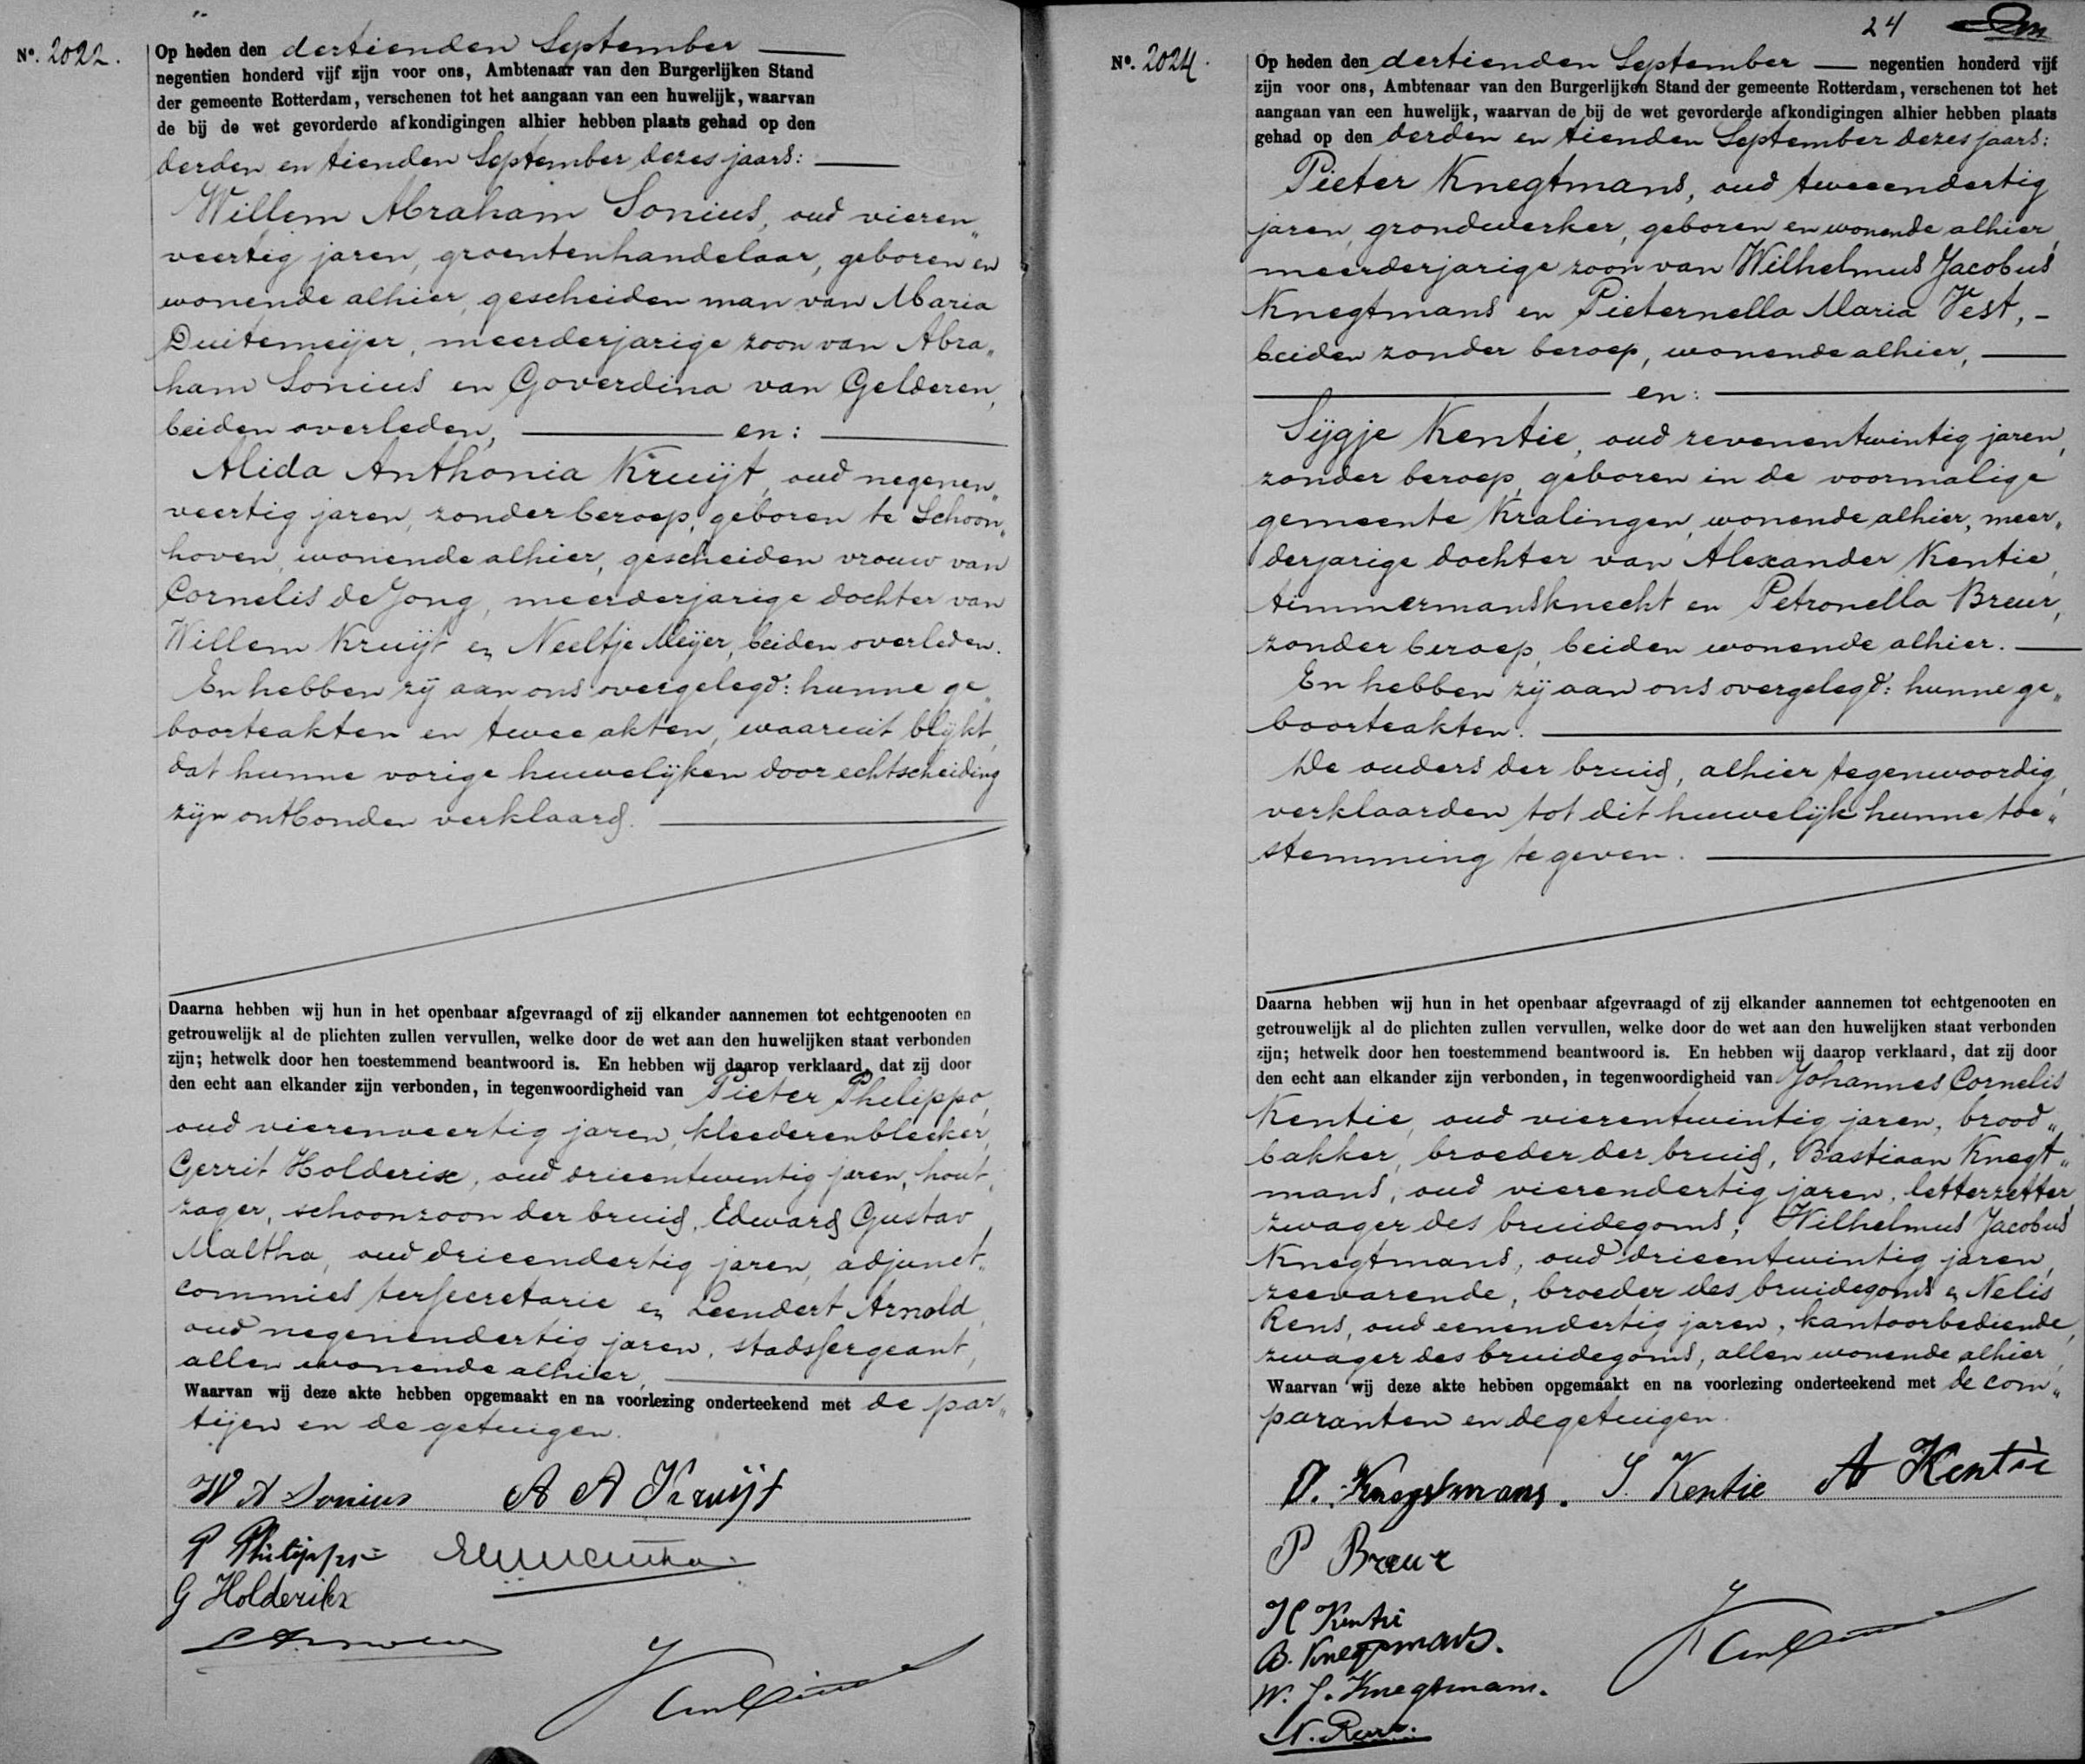 No. 2022.
Op heden den dertienden September
negentien honderd vijf zijn voor ons, Ambtenaar van den Burgerlijken Stand
der gemeente Rotterdam, verschenen tot het aangaan van een huwelijk, waarvan
de bij de wet gevorderde afkondigingen alhier hebben plaats gehad op den
derden en tienden September dezes jaars:
Willem Abraham Sonius, oud vieren„
veertig jaren, groentenhandelaar, geboren en
wonende alhier, gescheiden man van Maria
Duitemeijer, meerderjarige zoon van Abra„
ham Sonius en Goverdina van Gelderen,
beiden overleden, en:
Alida Anthonia Kruijt, oud negenen„
veertig jaren, zonder beroep, geboren te Schoon„
hoven, wonende alhier, gescheiden vrouw van
Cornelis de Jong, meerderjarige dochter van
Willem Kruijt en Neeltje Meijer, beiden overleden.
En hebben zij aan ons overgelegd: hunne ge„
boorteakten en twee akten, waaruit blijkt,
dat hunne vorige huwelijken door echtscheiding
zijn ontbonden verklaard.
Daarna hebben wij hun in het openbaar afgevraagd of zij elkander aannemen tot echtgenooten en
getrouwelijk al de plichten zullen vervullen, welke door de wet aan den huwelijken staat verbonden
zijn; hetwelk door hen toestemmend beantwoord is. En hebben wij daarop verklaard, dat zij door
den echt aan elkander zijn verbonden, in tegenwoordigheid van Pieter Philippo,
oud vierenveertig jaren, kleederenbleeker,
Gerrit Holderix, oud drieentwintig jaren, hout„
zager, schoonzoon der bruid, Edward Gustav
Maltha, oud drieendertig jaren, adjunct„
commies ter secretarie en Leendert Arnold,
oud negenendertig jaren, stadssergeant,
allen wonende alhier,
Waarvan wij deze akte hebben opgemaakt en na voorlezing onderteekend met de par„
tijen en de getuigen.
W A Sonius A A Kruijt
P Philippo
G Holderikx
24
No. 2024.
Op heden den dertienden September negentien honderd vijf
zijn voor ons, Ambtenaar van den Burgerlijken Stand der gemeente Rotterdam, verschenen tot het
aangaan van een huwelijk, waarvan de bij de wet gevorderde afkondigingen alhier hebben plaats
gehad op den derden en tienden September dezes jaars:
Pieter Knegtmans, oud tweeendertig
jaren, grondwerker, geboren en wonende alhier,
meerderjarige zoon van Wilhelmus Jacobus
Knegtmans en Pieternella Maria Vest,
beiden zonder beroep, wonende alhier,
en:
Sijgje Kentie, oud zevenentwintig jaren,
zonder beroep, geboren in de voormalige
gemeente Kralingen, wonende alhier, meer„
derjarige dochter van Alexander Kentie,
timmermansknecht en Petronella Breur,
zonder beroep, beiden wonende alhier.
En hebben zij aan ons overgelegd: hunne ge„
boorteakten.
De ouders der bruid, alhier tegenwoordig,
verklaarden tot dit huwelijk hunne toe„
stemming te geven.
Daarna hebben wij hun in het openbaar afgevraagd of zij elkander aannemen tot echtgenooten en
getrouwelijk al de plichten zullen vervullen, welke door de wet aan den huwelijken staat verbonden
zijn; hetwelk door hen toestemmend beantwoord is. En hebben wij daarop verklaard, dat zij door
den echt aan elkander zijn verbonden, in tegenwoordigheid van Johannes Cornelis
Kentie, oud vierentwintig jaren, brood„
bakker, broeder der bruid, Bastiaan Knegt„
mans, oud vierendertig jaren, letterzetter,
zwager des bruidegoms, Wilhelmus Jacobus
Knegtmans, oud drieentwintig jaren,
zeevarende, broeder des bruidegoms en Nelis
Rens, oud eenendertig jaren, kantoorbediende,
zwager des bruidegoms, allen wonende alhier,
Waarvan wij deze akte hebben opgemaakt en na voorlezing onderteekend met de com„
paranten en de getuigen.
P. Knegtmans. S. Kentie A Kentie
P Breur
Kentie
B. Knegtmans.
W. J. Knegtmans.
N. Rens.